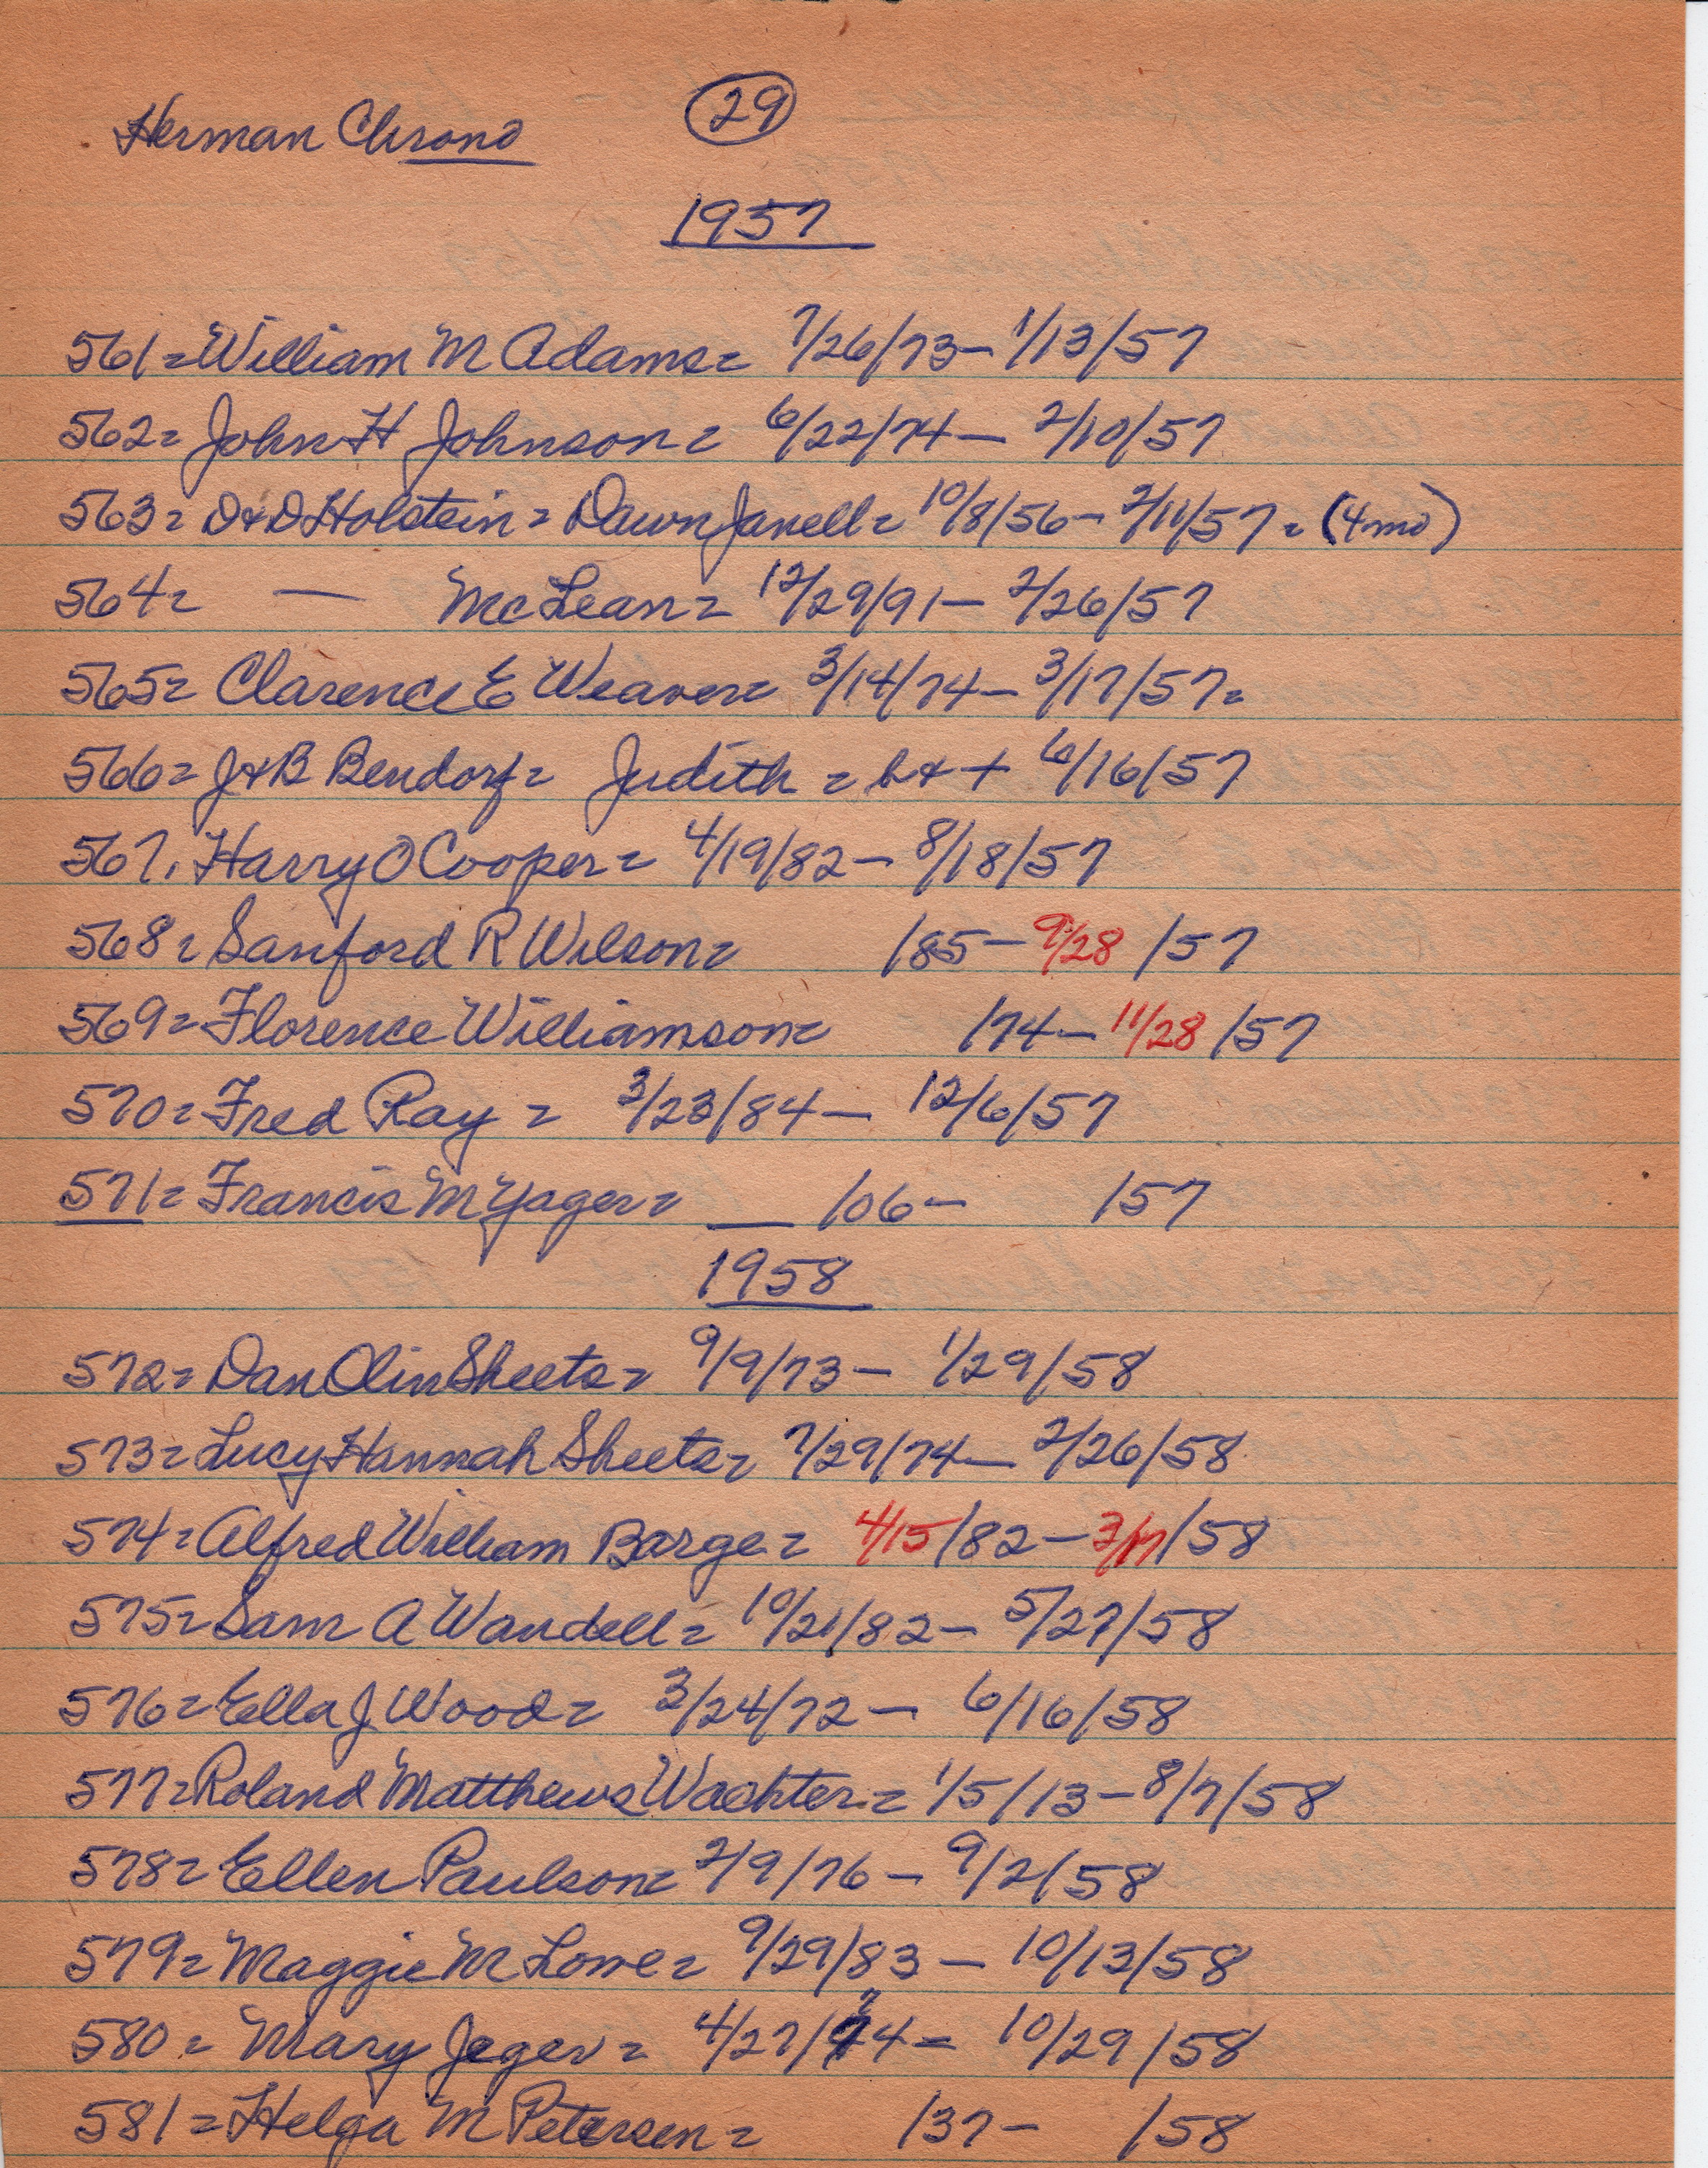 Herman Chrono
29
1957
561= William M Adams= 7/26/73- 1/13/57
562= John H Johnson= 6/22/74- 2/10/57
563= D&D Holstein= Dawn Janell= 10/8/56- 2/11/57= (4mo)
564= — McLean= 12/29/91- 2/26/57
565= Clarence E Weaver= 3/14/74- 3/17/57=
566= J&B Bendorf= Judith = b & + 6/16/57
567. Harry O Cooper= 4/19/82- 8/18/57
568= Sanford R Wilson= /85- 9/28 /57
569= Florence Williamson= /74- 11/28 /57
570= Fred Ray = 3/23/84- 12/6/57
571= Francis M Yager= — /06- /57
1958
572= Dan Olin Sheets= 9/9/73- 1/29/58
573= Lucy Hannah Sheets= 7/29/74- 2/26/58
574= Alfred William Barge= 4/15/82- 3/17/58
575= Sam A Wandell= 10/21/82- 5/27/58
576= Ella J Wood= 3/24/72- 6/16/58
577= Roland Matthews Wachter= 1/5/13- 8/7/58
578= Ellen Paulson= 2/9/76- 9/2/58
579= Maggie M Lowe= 9/29/83- 10/13/58
580= Mary Jeger= 4/27/74= 10/29/58
581= Helga M Petersen= /37- /58